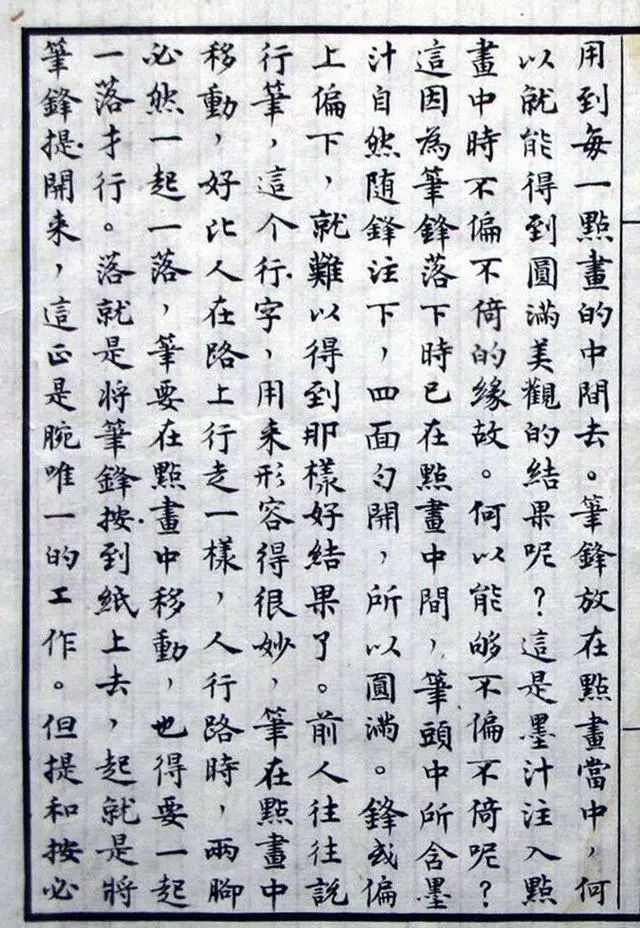 用到每一點畫的中間去。筆鋒放在點畫當中，何
以就能得到圓滿美觀的結果呢？這是墨汁注入點
畫中時不偏不倚的緣故。何以能够不偏不倚呢？
這因為筆鋒落下時已在點畫中間，筆頭中所含墨
汁自然随鋒注下，四面勻開，所以圓滿。鋒或偏
上偏下，就難以得到那樣好結果了。前人往往説
行筆，這个行字，用来形容得很妙，筆在點畫中
移動，好比人在路上行走一樣，人行路時，兩腳
必然一起一落，筆要在點畫中移動，也得要一起
一落才行。落就是將筆鋒按到紙上去，起就是將
筆鋒提開来，這正是腕唯一的工作。但提和按必